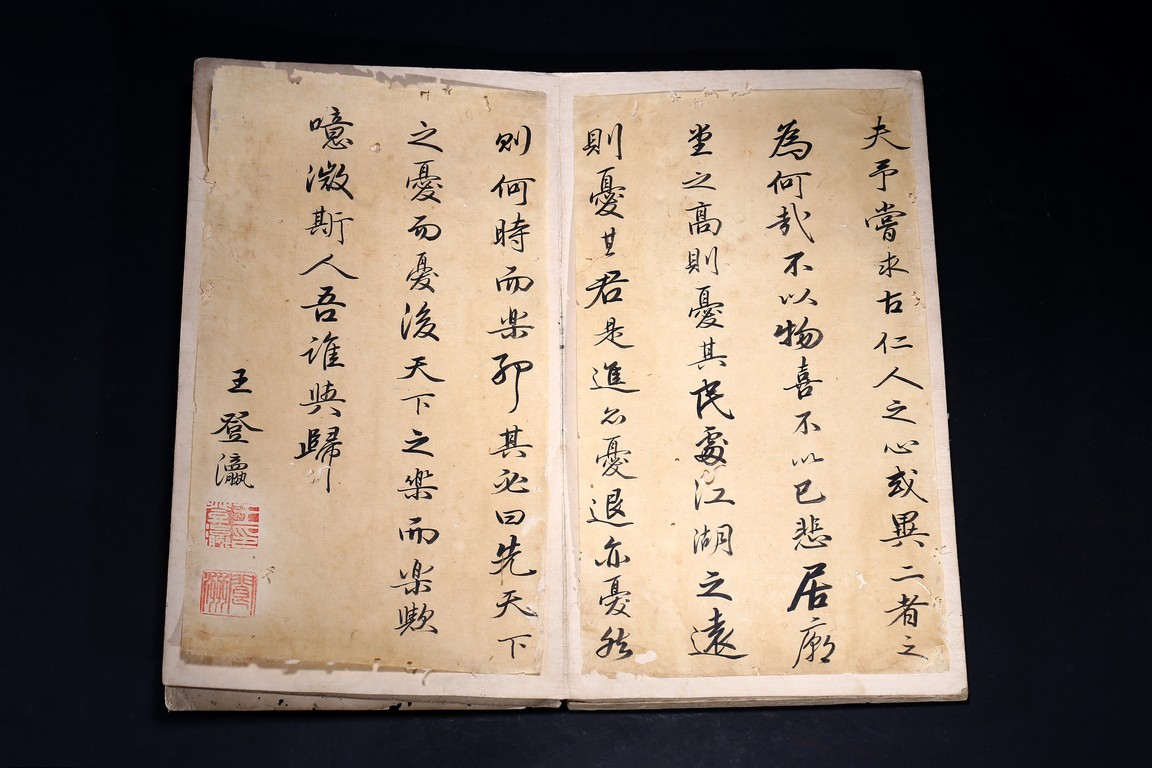 夫予嘗求古仁人之心或異二者之
為何哉不以物喜不以己悲居廟
堂之高則憂其民處江湖之遠
則憂其君是進亦憂退亦憂然
則何時而樂耶其必曰先天下
之憂而憂後天下之樂而樂歟
噫微斯人吾誰與歸
王登瀛
王印登瀛
閬洲